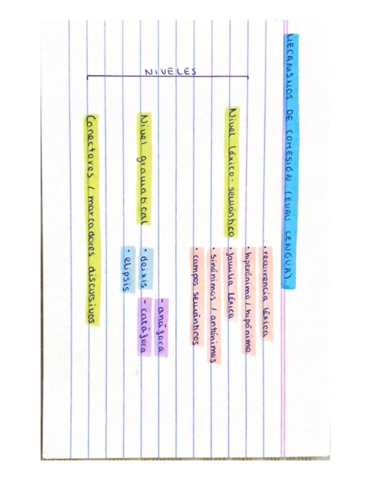 MECANISMOS DE COHESIÓN (EVAU LENGUA)
NIVELES
• recurrencia léxica
• hiperónimo / hipónimo
Nivel léxico-semántico • familia léxica
• sinónimos / antónimos
• campos semánticos
- anáfora
Nivel gramatical • deixis - catáfora
• elipsis
Conectores / marcadores discursivos